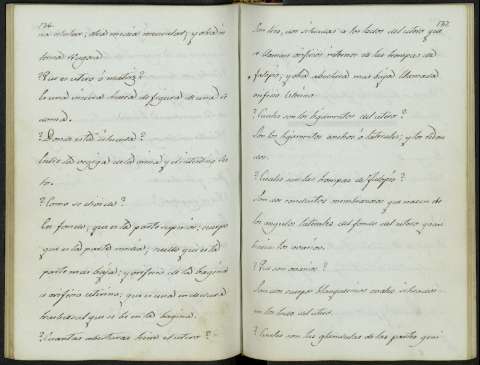 134
na celular; otra media muscular; y otra in
terna mucosa.
? Que es utero ó matriz?
Es una viscera hueca de figura de una re
doma.
? Donde está situada?
Entre la vegiga de la orina y el intestino rec
to.
? Como se divide?
En fondo; que es la parte superior; cuerpo
que es la parte media; cuello que es la
parte mas baja; y orificio de la bagina
u orificio uterino; que es una endidura
trasbersal que se be en la bagina.
? Cuantas aberturas tiene el utero?
135
Son tres, dos situadas a los lados del utero que
se llaman orificios internos de las trompas de
falopio; y otra abertura mas baja llamada
orificio Uterino.
? Cuales son los ligamentos del utero?
Son los ligamentos anchos ó laterales; y los redon
dos.
? Cuales son las trompas de Falopio?
Son dos conductos membranosos que nacen de
los angulos laterales del fondo del utero y van
hacia los ovarios.
? Que son ovarios?
Son dos cuerpos blanquecinos ovales situados
en los lados del utero.
? Cuales son las glandulas de las partes geni